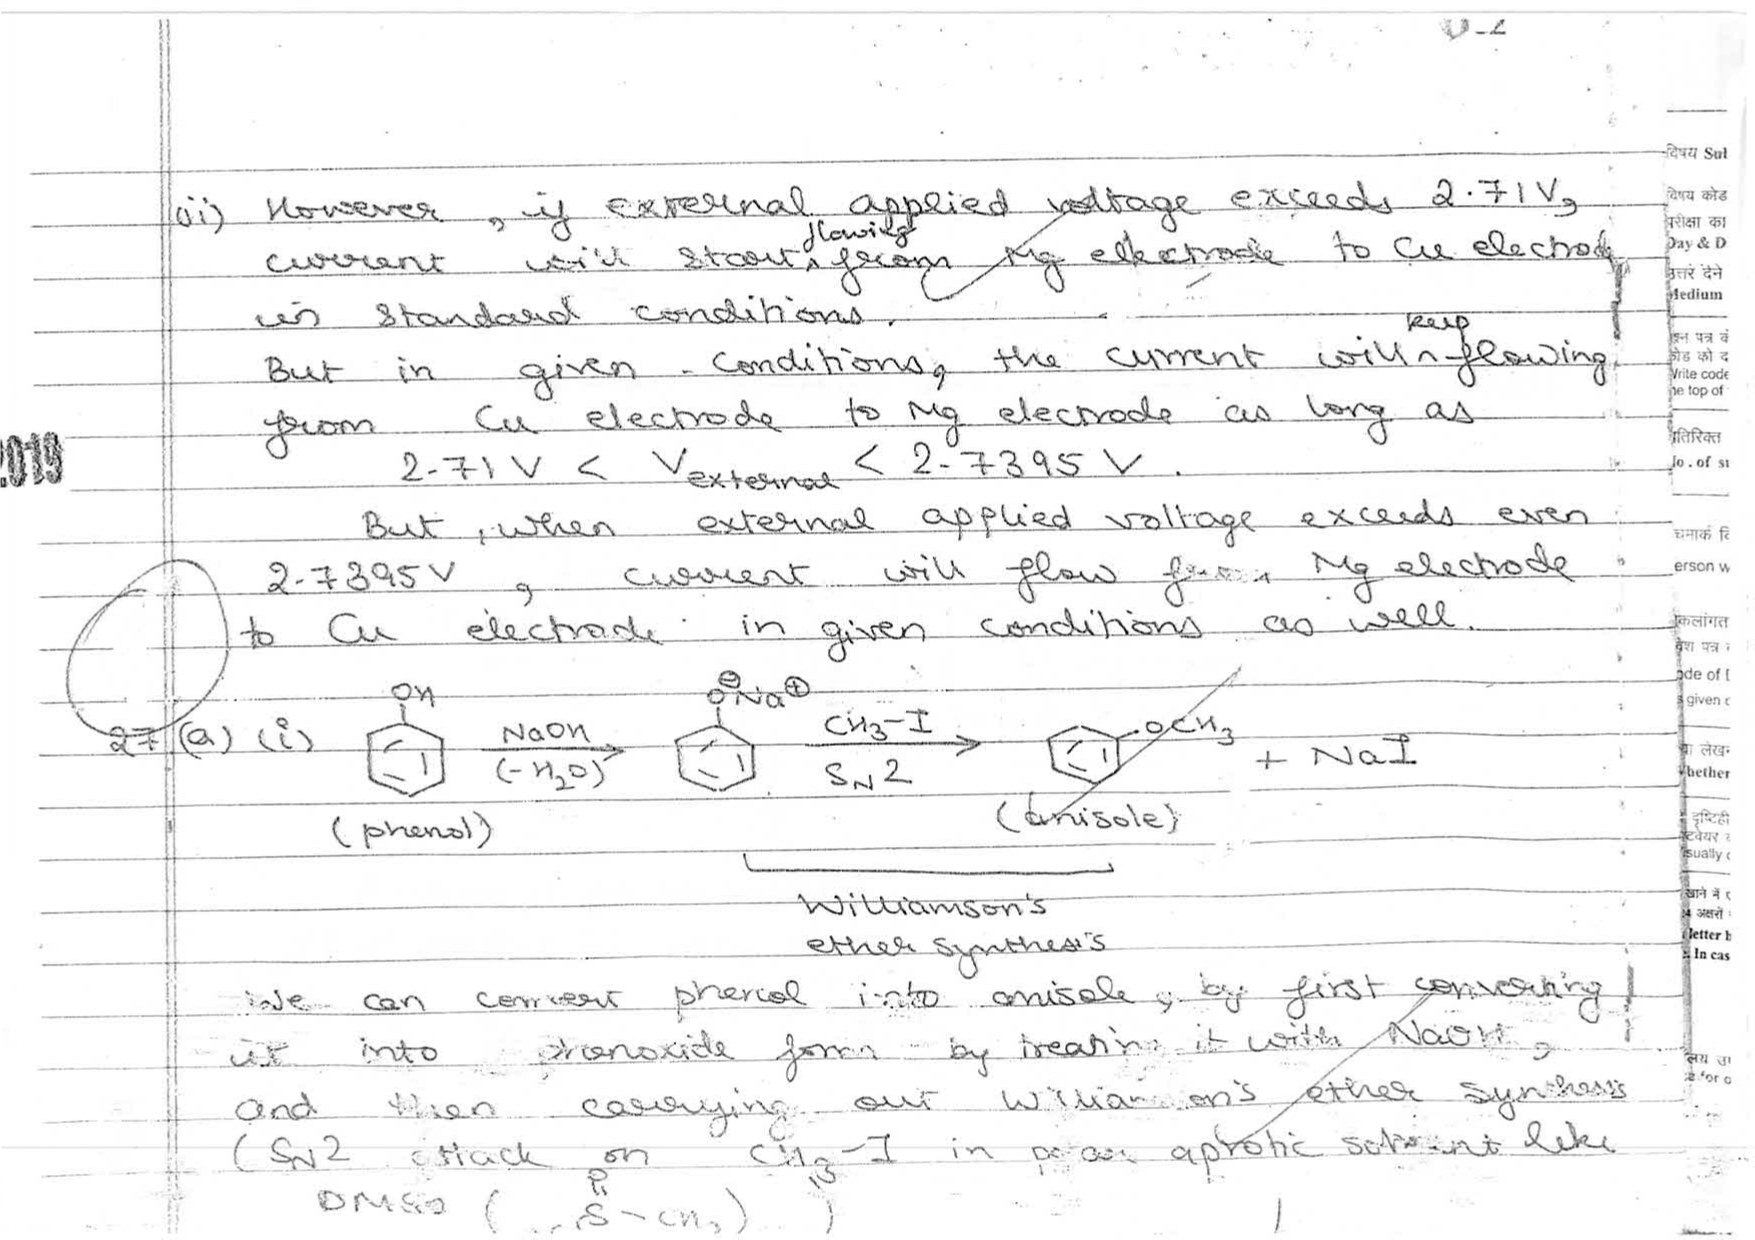 (ii) However, if external applied voltage exceeds 2.71V,
current will start flowing from Mg electrode to Cu electrode
in standard conditions.
But in given conditions, the current will keep flowing
from Cu electrode to Mg electrode as long as
2.71V < Vexternal < 2.7395 V.
But, when external applied voltage exceeds even
2.7395V, current will flow from Mg electrode
to Cu electrode in given conditions as well.
2019
27 (a) (i) OH NaOH (-H2O) O⊖Na⊕ CH3-I SN2 OCH3 + NaI
(phenol) (anisole)
Williamson's
ether synthesis
We can convert phenol into anisole, by first converting
it into phenoxide form by treating it with NaOH,
and then carrying out Williamson's ether synthesis
(SN2 attack on CH3-I in polar aprotic solvent like
DMSO ( S-CH3) )
विषय Sub
विषय कोड
परीक्षा का
Day & D
उत्तर देने
Medium
Write code
he top of
No. of su
erson w
ode of
s given
hether
sually
letter b
In cas